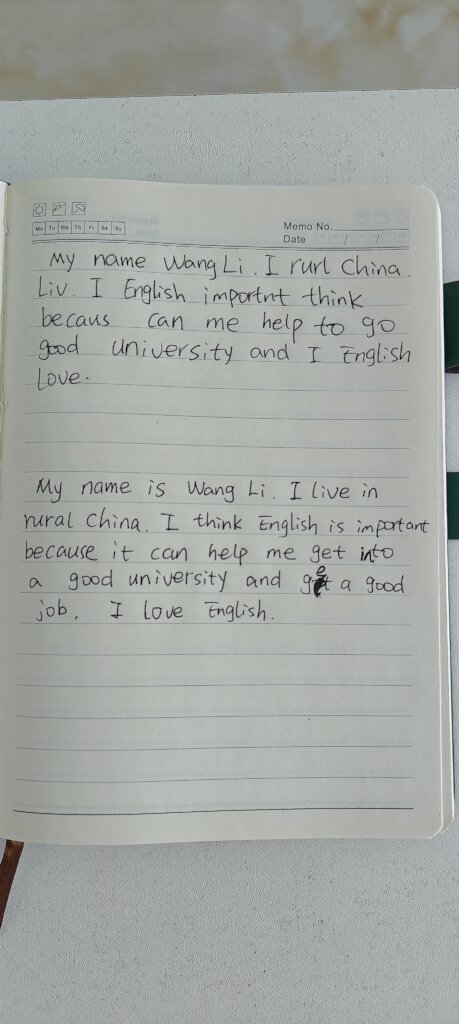 Mo Tu We Th Fr Sa Su
Memo No.
Date / /
My name Wang Li. I rurl China.
Liv. I English importnt think
becaus can me help to go
good university and I English
Love.
My name is Wang Li. I live in
rural China. I think English is important
because it can help me get into
a good university and get a good
job. I love English.